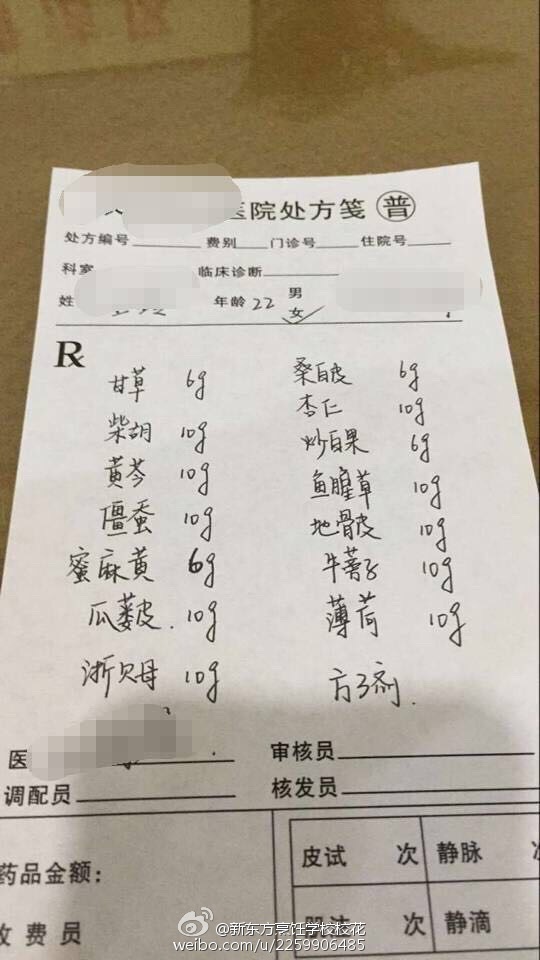 医院处方笺 普
处方编号 费别 门诊号 住院号
科室 临床诊断
姓 年龄 22 男
女 ✓
R
甘草 6g 桑白皮 6g
柴胡 10g 杏仁 10g
黄芩 10g 炒白果 6g
僵蚕 10g 鱼腥草 10g
蜜麻黄 6g 地骨皮 10g
瓜蒌皮. 10g 牛蒡子 10g
浙贝母 10g 薄荷 10g
方3剂.
医
审核员
调配员 核发员
药品金额:
收费员
皮试 次 静脉 次
次 静滴
@新东方烹饪学校校花
weibo.com/u/2259906485